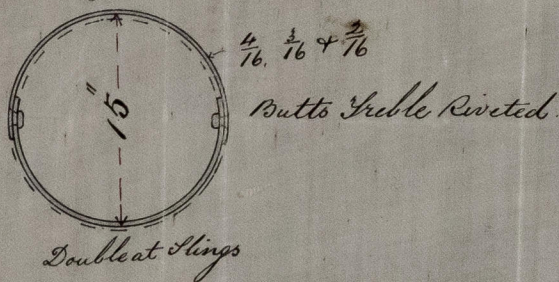 4/16, 3/16 & 2/16
15"
Butts Treble Riveted.
Double at Slings